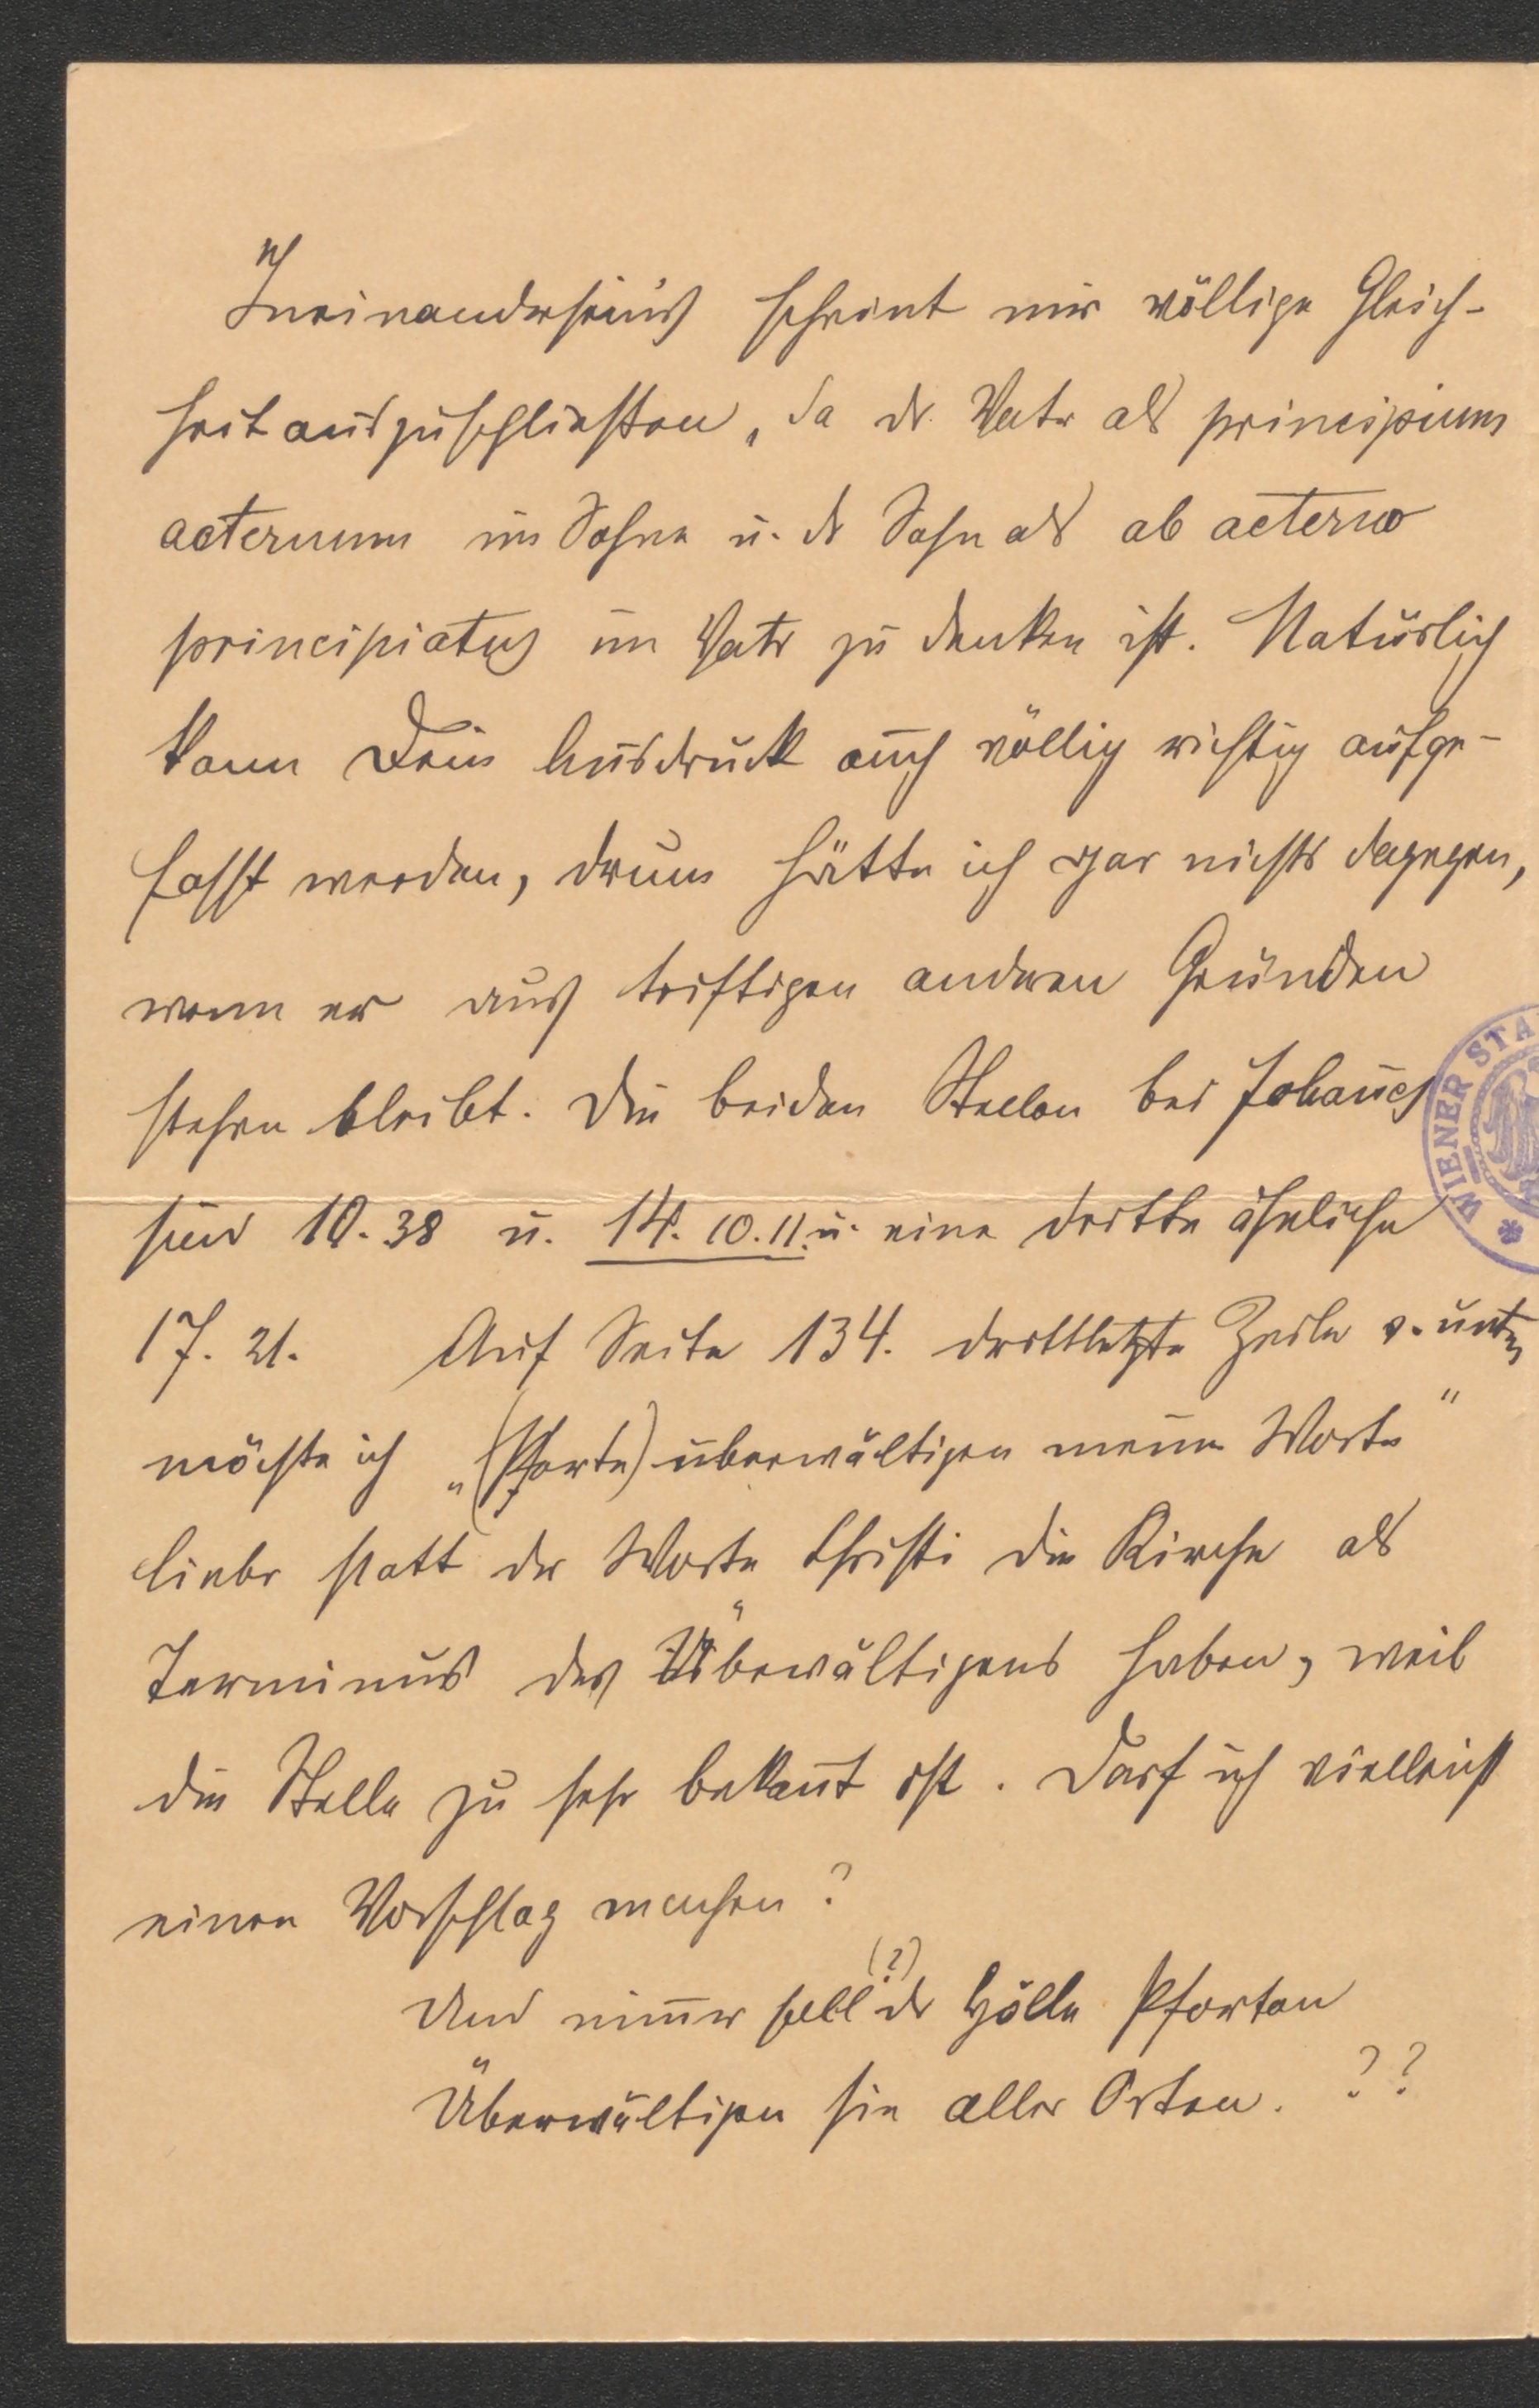 Ineinanderseins scheint mir völlige Gleich-
heit auszuschließen, da dr Vatr als principium
aeternum im Sohne u. dr Sohn als ab aeterno
principiatus im Vatr zu denken ist. Natürlich
kann Dein Ausdruck auch völlig richtig aufge-
fasst werden, drum hätte ich gar nichts dagegen,
wenn er aus triftigen anderen Gründen
stehen bleibt. Die beiden Stellen bei Johannes
sind 10.38 u. 14. 10.11. u. eine dritte ähnliche
17. 21. Auf Seite 134. drittletzte Zeile v. unten
möchte ich „(Pforte) überwältigen meine Worte"
lieber statt der Worte Christi die Kirche als
Terminus des Überwältigens haben, weil
die Stelle zu sehr bekannt ist. Darf ich vielleicht
einen Vorschlag machen?
(?)
Und nimmer soll dr Hölle Pforten
Überwältigen sie aller Orten. ??
WIENER STA